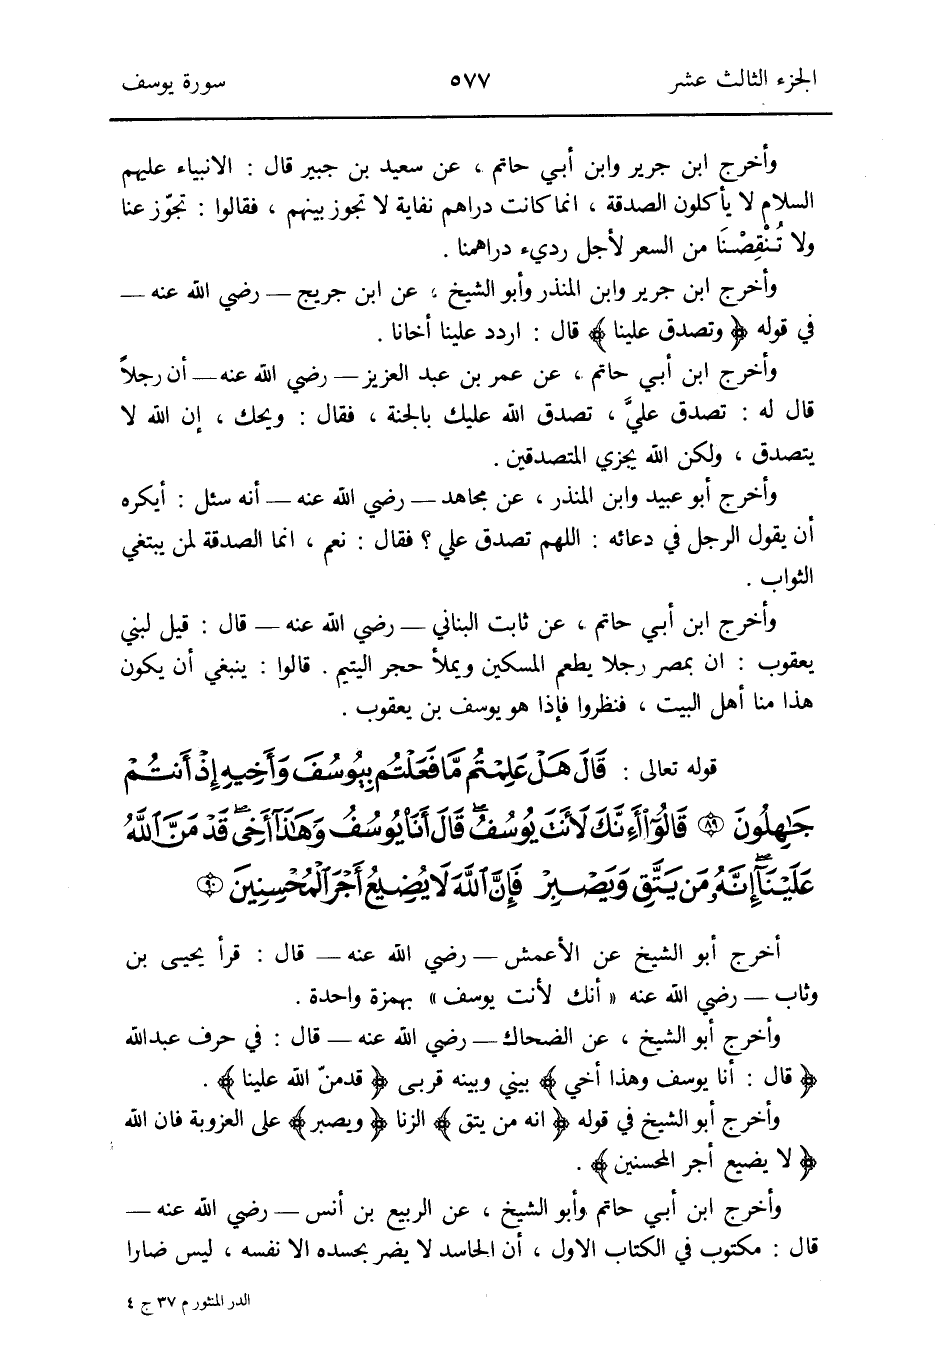 الجزء الثالث عشر ٥٧٧ سورة يوسف
وأخرج ابن جرير وابن أبي حاتم ، عن سعيد بن جبير قال : الانبياء عليهم
السلام لا يأكلون الصدقة ، انما كانت دراهم نفاية لا تجوز بينهم ، فقالوا : تجوّز عنا
ولا تُنْقِصْنَا من السعر لأجل رديء دراهمنا .
وأخرج ابن جرير وابن المنذر وأبو الشيخ ، عن ابن جريج — رضي الله عنه —
في قوله ﴿ وتصدق علينا ﴾ قال : اردد علينا أخانا .
وأخرج ابن أبي حاتم ، عن عمر بن عبد العزيز — رضي الله عنه — أن رجلاً
قال له : تصدق عليَّ ، تصدق الله عليك بالجنة ، فقال : ويحك ، إن الله لا
يتصدق ، ولكن الله يجزي المتصدقين .
وأخرج أبو عبيد وابن المنذر ، عن مجاهد — رضي الله عنه — أنه سئل : أيكره
أن يقول الرجل في دعائه : اللهم تصدق علي ؟ فقال : نعم ، انما الصدقة لمن يبتغي
الثواب .
وأخرج ابن أبي حاتم ، عن ثابت البناني — رضي الله عنه — قال : قيل لبني
يعقوب : ان بمصر رجلا يطعم المسكين ويملأ حجر اليتيم . قالوا : ينبغي أن يكون
هذا منا أهل البيت ، فنظروا فإذا هو يوسف بن يعقوب .
قوله تعالى : قَالَ هَلْ عَلِمْتُم مَّا فَعَلْتُم بِيُوسُفَ وَأَخِيهِ إِذْ أَنتُمْ
جَٰهِلُونَ ۝٨٩ قَالُوٓا۟ أَءِنَّكَ لَأَنتَ يُوسُفُ ۖ قَالَ أَنَا۠ يُوسُفُ وَهَٰذَآ أَخِى ۖ قَدْ مَنَّ ٱللَّهُ
عَلَيْنَآ ۖ إِنَّهُۥ مَن يَتَّقِ وَيَصْبِرْ فَإِنَّ ٱللَّهَ لَا يُضِيعُ أَجْرَ ٱلْمُحْسِنِينَ ۝٩٠
أخرج أبو الشيخ عن الأعمش — رضي الله عنه — قال : قرأ يحيى بن
وثاب — رضي الله عنه « أنك لأنت يوسف » بهمزة واحدة .
وأخرج أبو الشيخ ، عن الضحاك — رضي الله عنه — قال : في حرف عبدالله
﴿ قال : أنا يوسف وهذا أخي ﴾ بيني وبينه قربى ﴿ قدمنّ الله علينا ﴾ .
وأخرج أبو الشيخ في قوله ﴿ انه من يتق ﴾ الزنا ﴿ ويصبر ﴾ على العزوبة فان الله
﴿ لا يضيع أجر المحسنين ﴾ .
وأخرج ابن أبي حاتم وأبو الشيخ ، عن الربيع بن أنس — رضي الله عنه —
قال : مكتوب في الكتاب الاول ، أن الحاسد لا يضر بحسده الا نفسه ، ليس ضارا
الدر المنثور م ٣٧ ج ٤